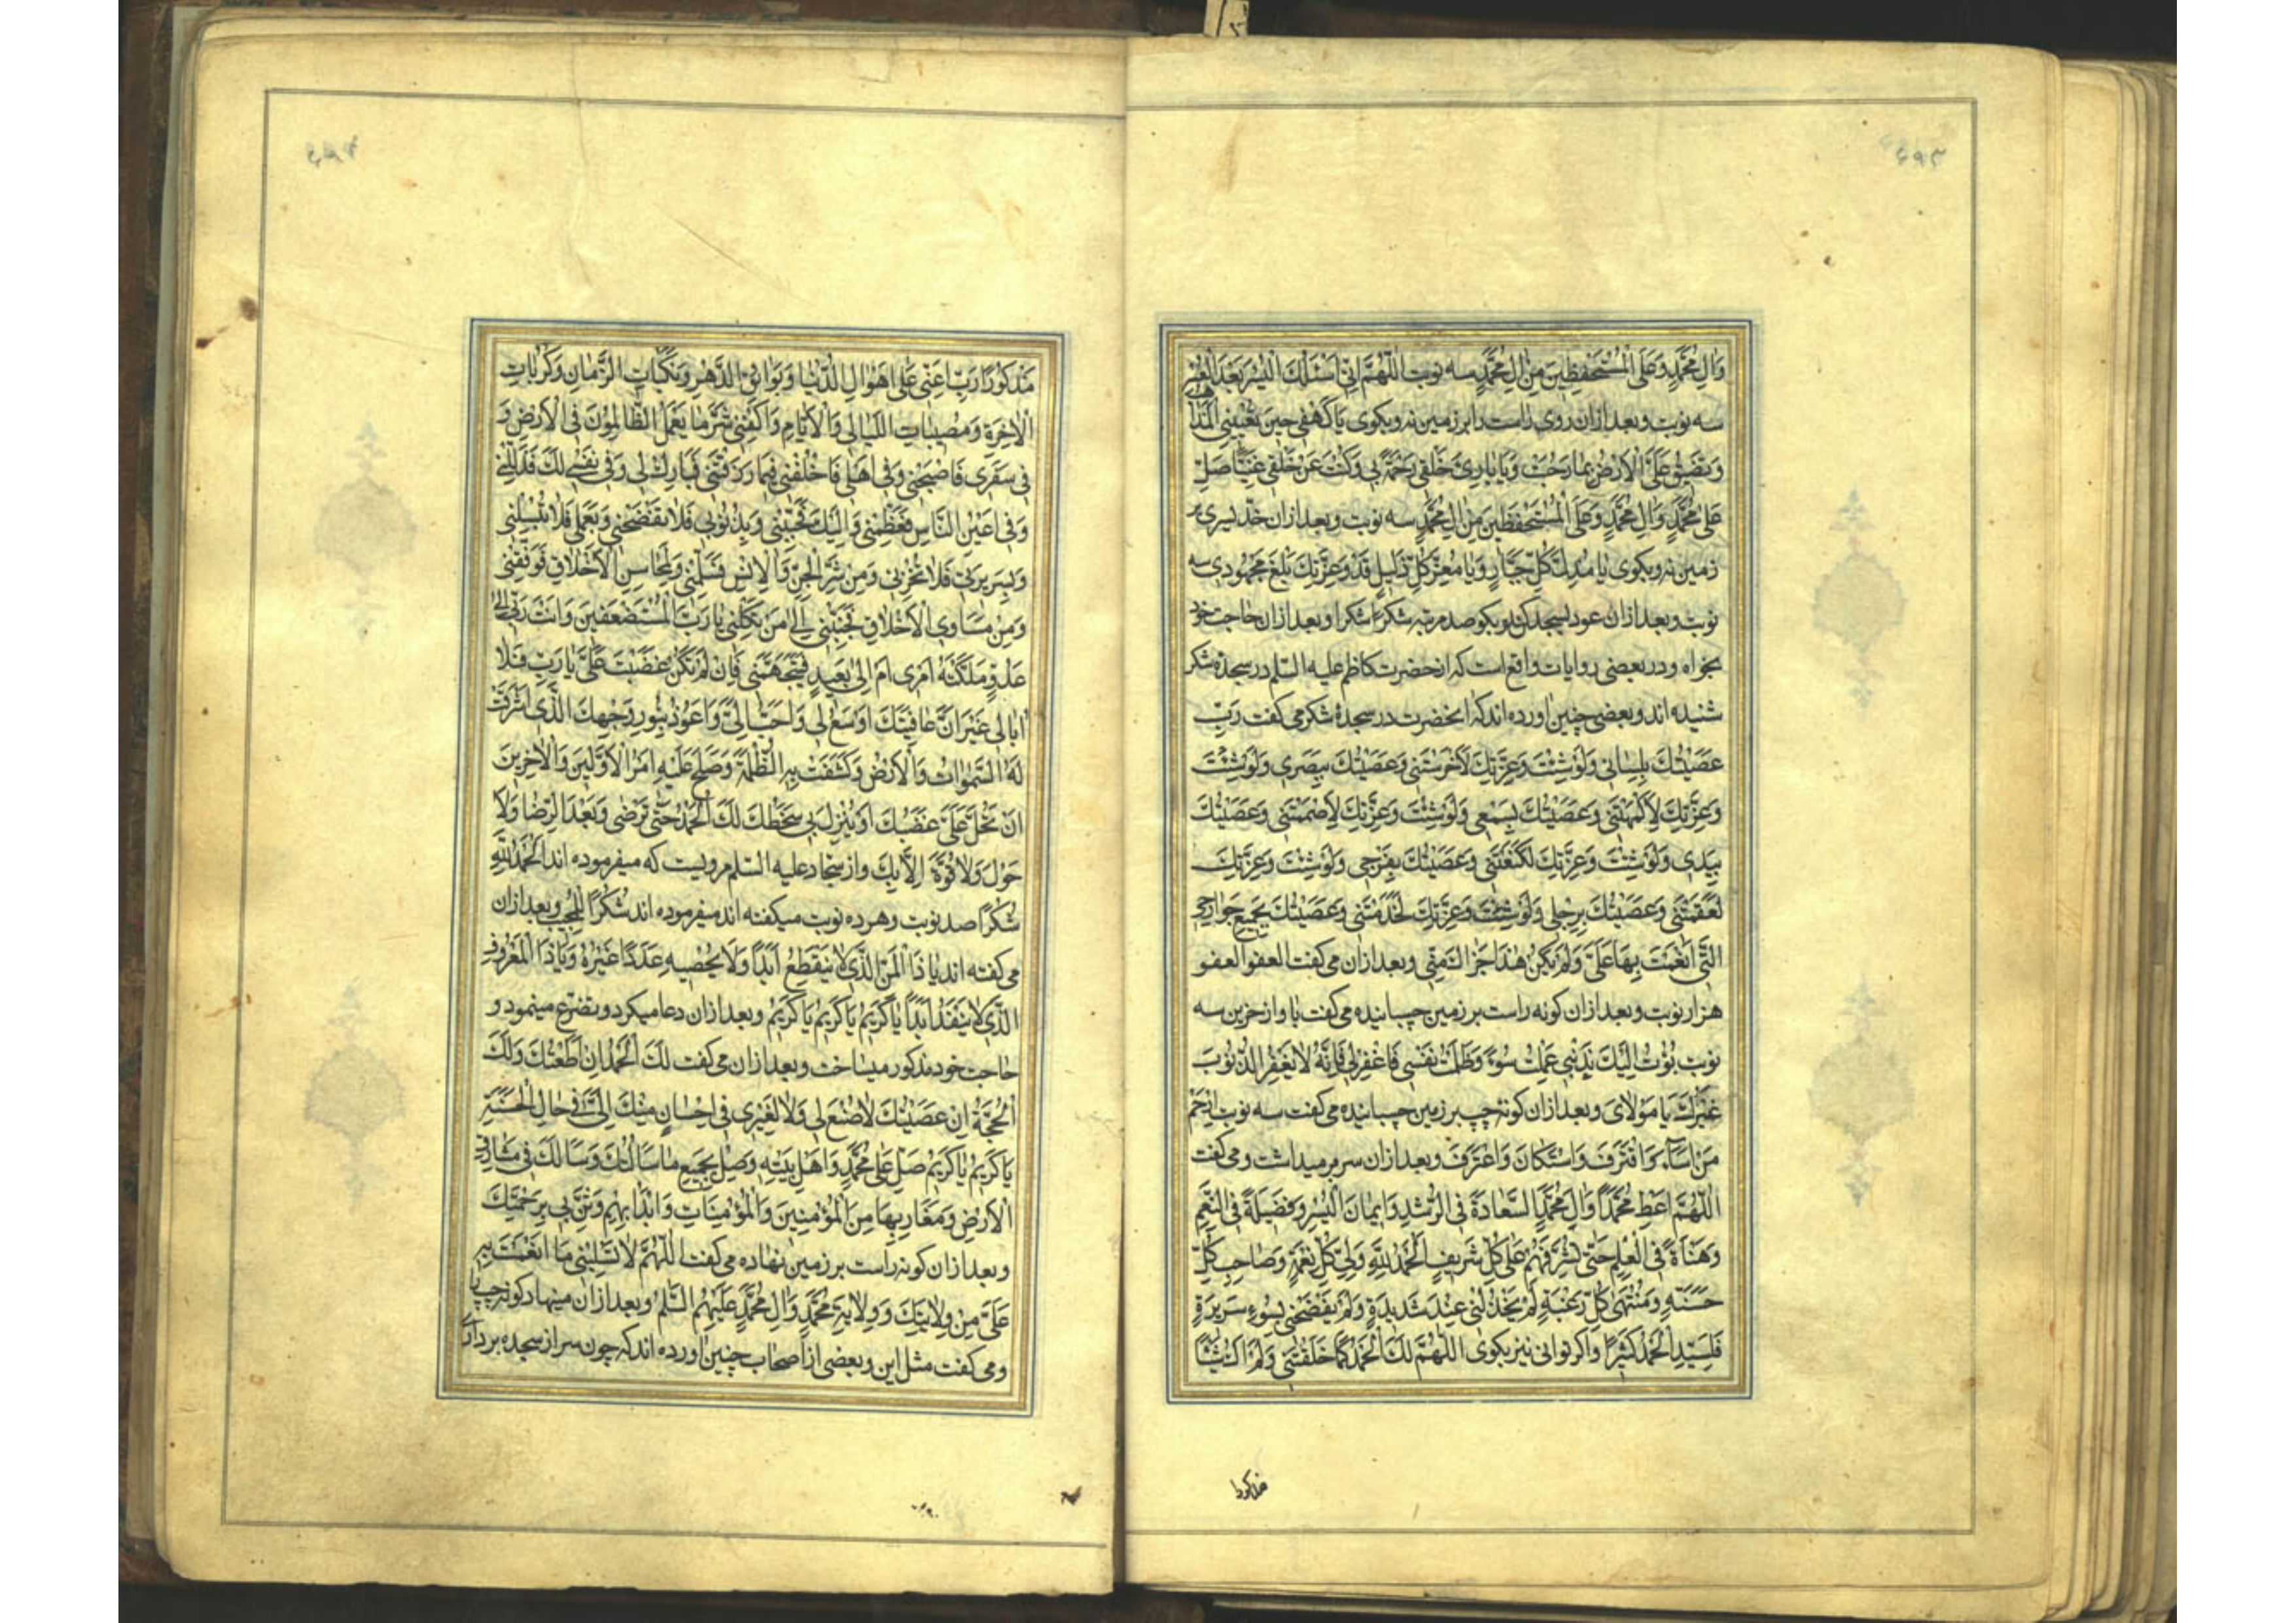 وَالِ مُحَمَّدٍ وَعَلَى الْمُسْتَحْفَظِينَ مِنْ الِ مُحَمَّدٍ سه نوبت اَللّٰهُمَّ اِنّى اَسْئَلُكَ الْيُسْرَ بَعْدَ الْعُسْرِ
سه نوبت وبعد ازان روى راست را بر زمين نه وبكوى يَا كَهْفى حينَ تُعْيينِى الْمَذَاهِبُ
وَتَضيقُ عَلَىَّ الْاَرْضُ بِمَا رَحُبَتْ وَيَا بَارِئَ خَلْقى رَحْمَةً بى وَكُنْتَ عَنْ خَلْقى غَنِيًّا صَلِّ
عَلٰى مُحَمَّدٍ وَالِ مُحَمَّدٍ وَعَلَى الْمُسْتَحْفَظينَ مِنْ الِ مُحَمَّدٍ سه نوبت وبعد ازان خد يسرى بر
زمين نه وبكوى يَا مُذِلَّ كُلِّ جَبَّارٍ وَيَا مُعِزَّ كُلِّ ذَليلٍ قَدْ وَعِزَّتِكَ بَلَغَ مَجْهُودى سه
نوبت وبعد ازان عود بسجد كن وبكو صد مرتبه شكرًا شكرا وبعد ازان حاجت خود
بخواه ودر بعضى روايات واقع است كه از حضرت كاظم عليه السّلم در سجدهٔ شكر
شنيده اند وبعضى چنين اورده اند كه انحضرت در سجدهٔ شكر مى كفت رَبِّ
عَصَيْتُكَ بِلِسَانى وَلَوْ شِئْتَ وَعِزَّتِكَ لَاَخْرَسْتَنى وَعَصَيْتُكَ بِبَصَرى وَلَوْ شِئْتَ
وَعِزَّتِكَ لَاَكْمَهْتَنى وَعَصَيْتُكَ بِسَمْعى وَلَوْ شِئْتَ وَعِزَّتِكَ لَاَصْمَمْتَنى وَعَصَيْتُكَ
بِيَدى وَلَوْ شِئْتَ وَعِزَّتِكَ لَكَنَّعْتَنى وَعَصَيْتُكَ بِفَرْجى وَلَوْ شِئْتَ وَعِزَّتِكَ
لَعَقَمْتَنى وَعَصَيْتُكَ بِرِجْلى وَلَوْ شِئْتَ وَعِزَّتِكَ لَجَذَمْتَنى وَعَصَيْتُكَ بِجَميعِ جَوَارِحِى
الَّتى اَنْعَمْتَ بِهَا عَلَىَّ وَلَمْ يَكُنْ هٰذَا جَزَاكَ مِنّى وبعد ازان مى كفت العفو العفو
هزار نوبت وبعد ازان كونه راست بر زمين چسبانيده مى كفت باواز حزين سه
نوبت بُؤْتُ اِلَيْكَ بِذَنْبى عَمِلْتُ سُوءً وَظَلَمْتُ نَفْسى فَاغْفِرْلى فَاِنَّهُ لَا يَغْفِرُ الذُّنُوبَ
غَيْرُكَ يَا مَوْلَاىَ وبعد ازان كونهٔ چپ بر زمين چسبانيده مى كفت سه نوبت اِرْحَمْ
مَنْ اَسَآءَ وَاقْتَرَفَ وَاسْتَكَانَ وَاعْتَرَفَ وبعد ازان سر بر ميداشت و مى كفت
اَللّٰهُمَّ اَعْطِ مُحَمَّدًا وَالَ مُحَمَّدٍ السَّعَادَةَ فِى الرُّشْدِ وَايمَانَ الْيُسْرِ وَفَضيلَةً فِى النِّعَمِ
وَهَنَاةً فِى الْعِلْمِ حَتّٰى تُشَرِّفَهُمْ عَلٰى كُلِّ شَريفٍ اَلْحَمْدُ لِلّٰهِ وَلِىِّ كُلِّ نِعْمَةٍ وَصَاحِبِ كُلِّ
حَسَنَةٍ وَمُنْتَهٰى كُلِّ رَغْبَةٍ لَمْ يَخْذُلْنى عِنْدَ شَديدَةٍ وَلَمْ يَفْضَحْنى بِسُوءِ سَريرَةٍ
فَلِسَيِّدِى الْحَمْدُ كَثيرًا واكر توانى نيز بكوى اَللّٰهُمَّ لَكَ الْحَمْدُ كَمَا خَلَقْتَنى وَلَمْ اَكُ شَيْئًا
مذكورا
مَذْكُورًا رَبِّ اَعِنّى عَلٰى اَهْوَالِ الدُّنْيَا وَبَوَائِقِ الدَّهْرِ وَنَكَبَاتِ الزَّمَانِ وَكُرُبَاتِ
الْاٰخِرَةِ وَمُصيبَاتِ اللَّيَالى وَالْاَيَّامِ وَاكْفِنى شَرَّ مَا يَعْمَلُ الظَّالِمُونَ فِى الْاَرْضِ وَ
فى سَفَرى فَاصْحَبْنى وَفى اَهْلى فَاخْلُفْنى فيمَا رَزَقْتَنى فَبَارِكْ لى وَفى نَفْسى لَكَ فَذَلِّلْنى
وَفى اَعْيُنِ النَّاسِ فَعَظِّمْنى وَاِلَيْكَ فَحَبِّبْنى وَبِذُنُوبى فَلَا تَفْضَحْنى وَبِعَمَلى فَلَا تُبْسِلْنى
وَبِسَريرَتى فَلَا تُخْزِنى وَمِنْ شَرِّ الْجِنِّ وَالْاِنْسِ فَسَلِّمْنى وَلِمَحَاسِنِ الْاَخْلَاقِ فَوَفِّقْنى
وَمِنْ مَسَاوِى الْاَخْلَاقِ فَجَنِّبْنى اِلٰى مَنْ تَكِلُنى يَا رَبَّ الْمُسْتَضْعَفينَ وَاَنْتَ رَبّى اِلٰى
عَدُوٍّ مَلَّكْتَهُ اَمْرى اَمْ اِلٰى بَعيدٍ فَيَتَجَهَّمَنى فَاِنْ لَمْ تَكُنْ غَضِبْتَ عَلَىَّ يَا رَبِّ فَلَا
اُبَالى غَيْرَ اَنَّ عَافِيَتَكَ اَوْسَعُ لى وَاَحَبُّ اِلَىَّ وَاَعُوذُ بِنُورِ وَجْهِكَ الَّذى اَشْرَقَتْ
لَهُ السَّمٰوَاتُ وَالْاَرْضُ وَكَشَفَتْ بِهِ الظُّلْمَةُ وَصَلُحَ عَلَيْهِ اَمْرُ الْاَوَّلينَ وَالْاٰخِرينَ
اَنْ تَحُلَّ عَلَىَّ غَضَبُكَ اَوْ يُنْزِلَ بى سَخَطُكَ لَكَ الْحَمْدُ حَتّٰى تَرْضٰى وَبَعْدَ الرِّضَا وَلَا
حَوْلَ وَلَا قُوَّةَ اِلَّا بِكَ واز سجاد عليه السّلم مرويست كه ميفرموده اند اَلْحَمْدُ لِلّٰهِ
شُكْرًا صد نوبت وهر ده نوبت ميكفته اند ميفرموده اند شُكْرًا لِلْمُجيبِ وبعد ازان
مى كفته اند يَا ذَا الْمَنِّ الَّذى لَا يَنْقَطِعُ اَبَدًا وَلَا يُحْصيهِ عَدَدًا غَيْرُهُ وَيَا ذَا الْمَعْرُوفِ
الَّذى لَا يَنْفَدُ اَبَدًا يَا كَريمُ يَا كَريمُ يَا كَريمُ وبعد ازان دعا ميكرد وتضرّع مينمود و
حاجت خود مذكور ميساخت وبعد ازان مى كفت لَكَ الْحَمْدُ اِنْ اَطَعْتُكَ وَلَكَ
الْحُجَّةُ اِنْ عَصَيْتُكَ لَا صُنْعَ لى وَلَا لِغَيْرى فى اِحْسَانٍ مِنْكَ اِلَىَّ فى حَالِ الْحَسَنَةِ
يَا كَريمُ يَا كَريمُ صَلِّ عَلٰى مُحَمَّدٍ وَاَهْلِ بَيْتِهِ وَصِلْ بِجَميعِ مَا سَاَلْتُكَ وَسَاَلَكَ فى مَشَارِقِ
الْاَرْضِ وَمَغَارِبِهَا مِنَ الْمُؤْمِنينَ وَالْمُؤْمِنَاتِ وَابْدَأْ بِهِمْ وَثَنِّ بى بِرَحْمَتِكَ
وبعد ازان كونه راست بر زمين نهاده مى كفت اَللّٰهُمَّ لَا تَسْلُبْنى مَا اَنْعَمْتَ بِهِ
عَلَىَّ مِنْ وِلَايَتِكَ وَوِلَايَةِ مُحَمَّدٍ وَالِ مُحَمَّدٍ عَلَيْهِمُ السَّلٰمُ وبعد ازان مينهاد كونه چپ را
ومى كفت مثل اين وبعضى از اصحاب چنين اورده اند كه چون سر از سجده بردارى